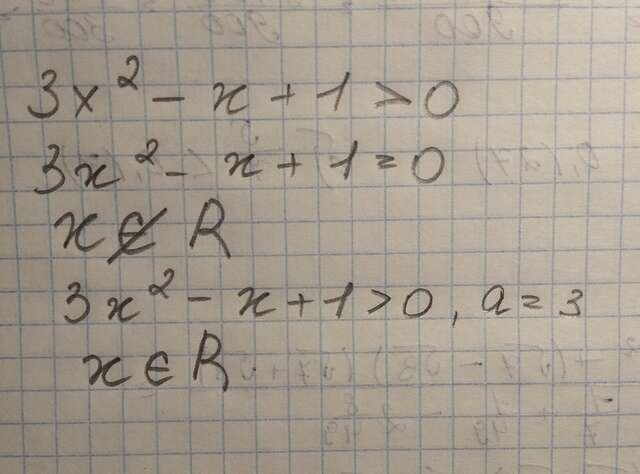 3x² - x + 1 > 0
3x² - x + 1 = 0
x ∉ R
3x² - x + 1 > 0, a = 3
x ∈ R